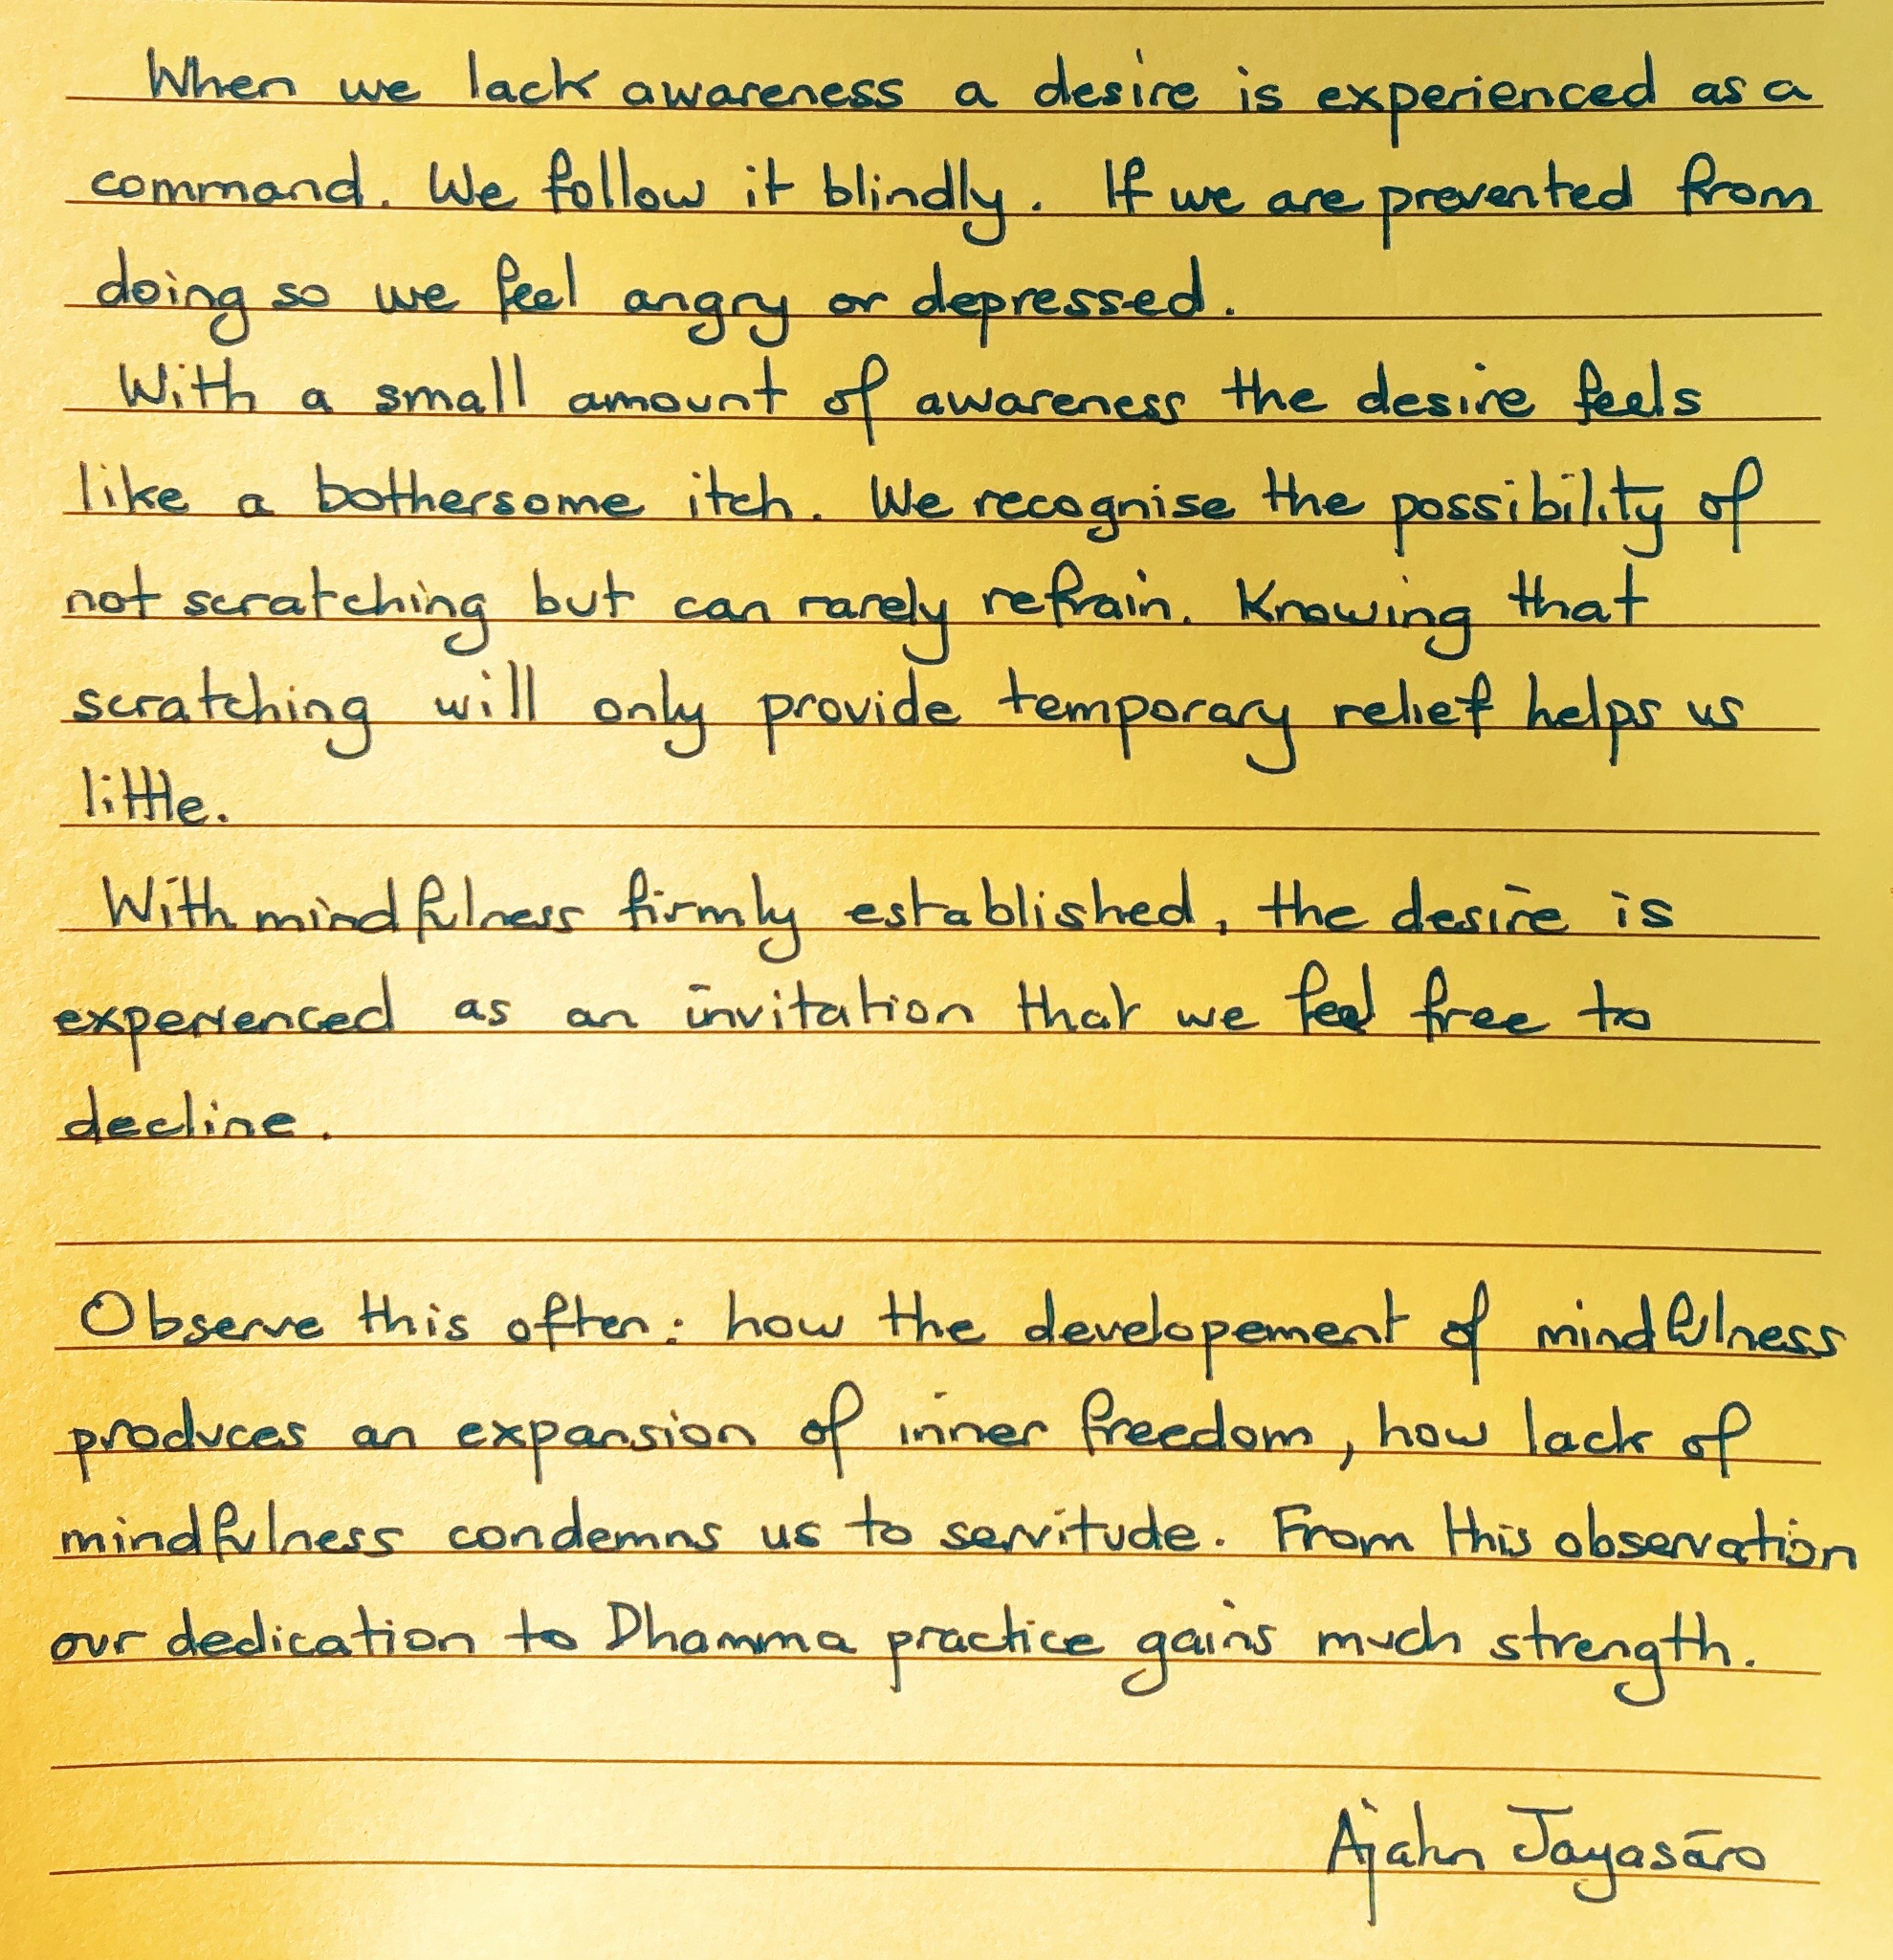 When we lack awareness a desire is experienced as a
command. We follow it blindly. If we are prevented from
doing so we feel angry or depressed.
With a small amount of awareness the desire feels
like a bothersome itch. We recognise the possibility of
not scratching but can rarely refrain. Knowing that
scratching will only provide temporary relief helps us
little.
With mindfulness firmly established, the desire is
experienced as an invitation that we feel free to
decline.
Observe this often: how the developement of mindfulness
produces an expansion of inner freedom, how lack of
mindfulness condemns us to servitude. From this observation
our dedication to Dhamma practice gains much strength.
Ajahn Jayasāro